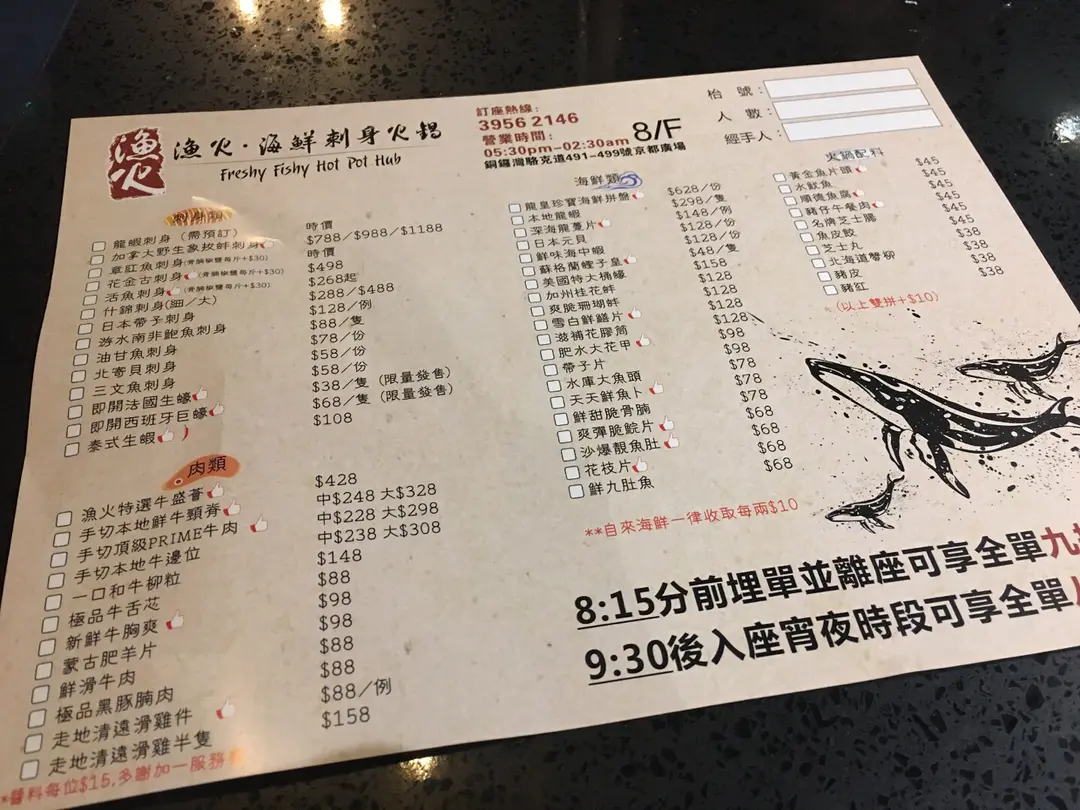 漁火
漁火·海鮮刺身火鍋
Freshy Fishy Hot Pot Hub
訂座熱線:
3956 2146
營業時間:
05:30pm-02:30am
8/F
銅鑼灣駱克道491-499號京都廣場
枱 號:
人 數:
經手人:
刺身類
龍蝦刺身 (需預訂) 時價
加拿大野生象拔蚌刺身 $788/$988/$1188
章魟魚刺身(骨腩椒鹽每斤+$30) 時價
花金古刺身(骨腩椒鹽每斤+$30) $498
活魚刺身(骨腩椒鹽每斤+$30) $268起
什錦刺身(細/大) $288/$488
日本帶子刺身 $128/例
游水南非鮑魚刺身 $88/隻
油甘魚刺身 $78/份
北寄貝刺身 $58/份
三文魚刺身 $58/份
即開法國生蠔 $38/隻 (限量發售)
即開西班牙巨蠔 $68/隻 (限量發售)
泰式生蝦 $108
肉類
漁火特選牛盛薈 $428
手切本地鮮牛頸脊 中$248 大$328
手切頂級PRIME牛肉 中$228 大$298
手切本地牛邊位 中$238 大$308
一口和牛柳粒 $148
極品牛舌芯 $88
新鮮牛胸爽 $98
蒙古肥羊片 $98
鮮滑牛肉 $88
極品黑豚腩肉 $88
走地清遠滑雞件 $88/例
走地清遠滑雞半隻 $158
*醬料每位$15,多謝加一服務
海鮮類
龍皇珍寶海鮮拼盤 $628/份
本地龍蝦 $298/隻
深海龍躉片 $148/例
日本元貝 $128/份
鮮味海中蝦 $128/份
蘇格蘭蟶子皇 $48/隻
美國特大桶蠔 $158
加州桂花蚌 $128
爽脆珊瑚蚌 $128
雪白鮮鱔片 $128
滋補花膠筒 $128
肥水大花甲 $98
帶子片 $98
水庫大魚頭 $78
天天鮮魚卜 $78
鮮甜脆骨腩 $78
爽彈脆鯇片 $68
沙爆靚魚肚 $68
花枝片 $68
鮮九肚魚 $68
**自來海鮮一律收取每兩$10
火鍋配料
黃金魚片頭 $45
水魷魚 $45
順德魚腐 $45
豬仔午餐肉 $45
名牌芝士腸 $45
魚皮餃 $45
芝士丸 $38
北海道蟹柳 $38
豬皮 $38
豬紅 $38
(以上雙拼+$10)
8:15分前埋單並離座可享全單九
9:30後入座宵夜時段可享全單